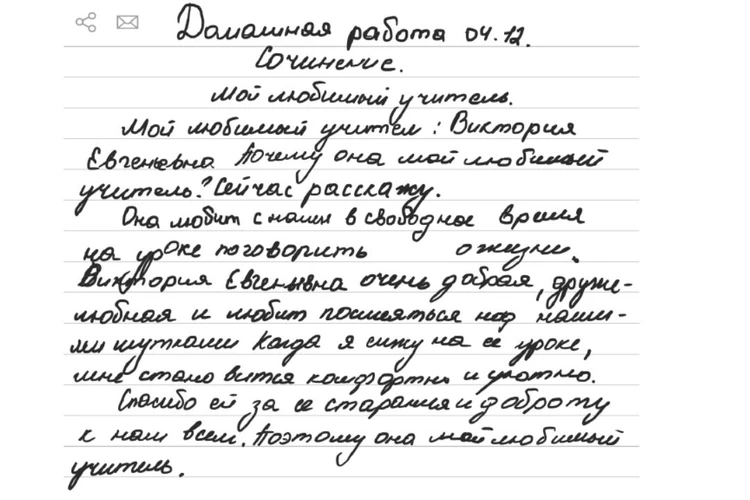 Домашная работа 04.12.
Сочинение.
Мой любимый учитель.
Мой любимый учител: Виктория
Евгеньевна Почему она мой любимый
учитель? Сейчас расскажу.
Она любит с нами в свободное время
на уроке поговорить о жизни.
Виктория Евгеньвна очень добрая, друже-
любная и любит посмеяться над наши-
ми шутками Когда я сижу на ее уроке,
мне становится комфортно и уютно.
Спасибо ей за ее старания и доброту
к нам всем. Поэтому она мой любимый
учитель.